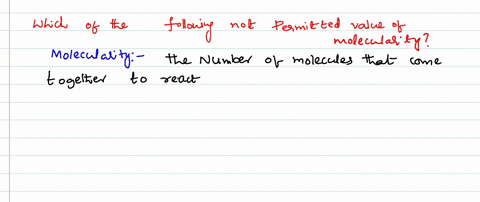 Which of the following not Permitted value of
molecularity?
Moleculality:- the Number of molecules that come
together to react